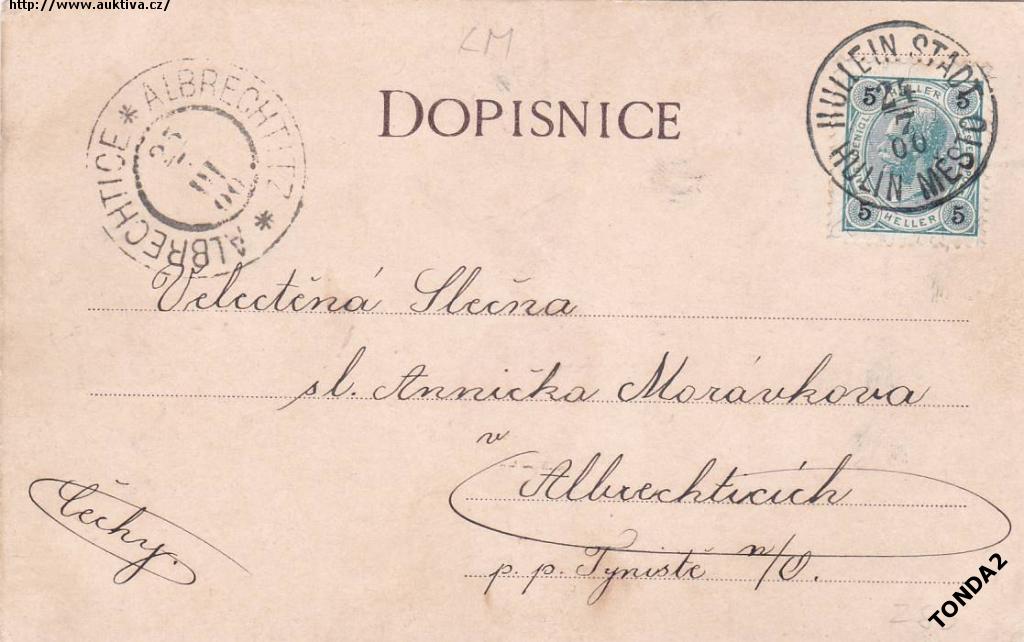 http://www.auktiva.cz/
LM
DOPISNICE
HULLEIN STADT
24
7
00
HULÍN MĚSTO
5 HELLER 5
5 HELLER 5
ALBRECHTITZ * ALBRECHTICE *
25
VII
00
Velectěná Slečna
sl. Annička Morávkova
v
Albrechticích
p. p. Tyniště n/O.
Čechy.
TONDA2